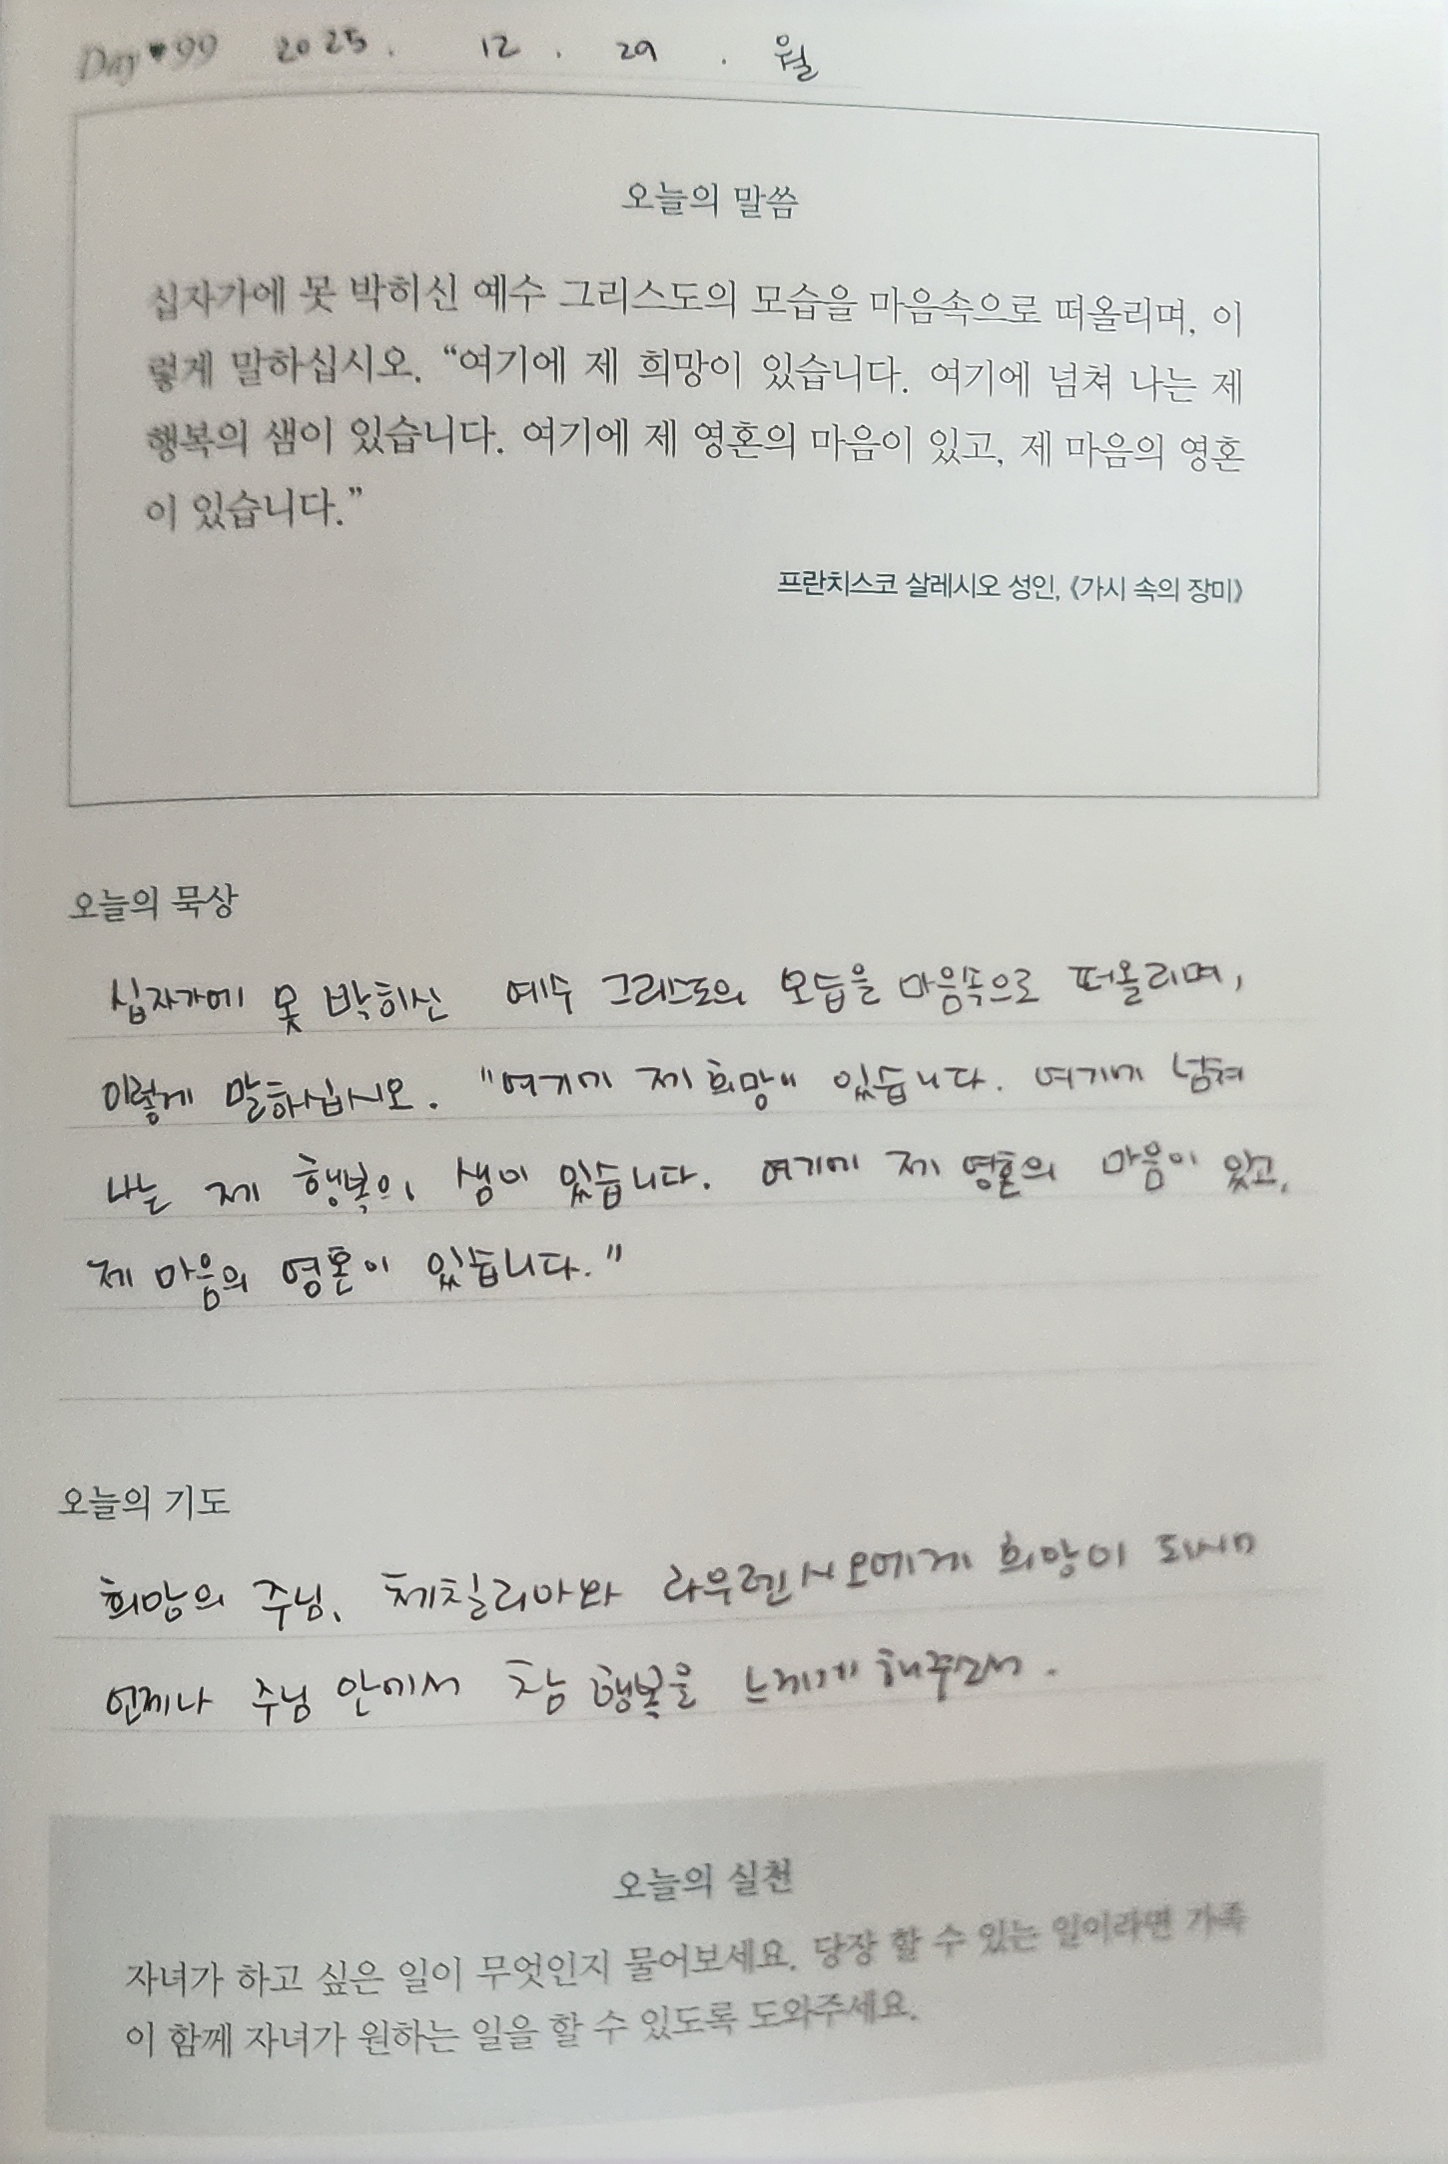 Day♥99 2025. 12. 29. 월
오늘의 말씀
십자가에 못 박히신 예수 그리스도의 모습을 마음속으로 떠올리며, 이
렇게 말하십시오. “여기에 제 희망이 있습니다. 여기에 넘쳐 나는 제
행복의 샘이 있습니다. 여기에 제 영혼의 마음이 있고, 제 마음의 영혼
이 있습니다.”
프란치스코 살레시오 성인, 《가시 속의 장미》
오늘의 묵상
십자가에 못 박히신 예수 그리스도의 모습을 마음속으로 떠올리며,
이렇게 말하십시오. "여기에 제 희망이 있습니다. 여기에 넘쳐
나는 제 행복의 샘이 있습니다. 여기에 제 영혼의 마음이 있고,
제 마음의 영혼이 있습니다."
오늘의 기도
희망의 주님, 체칠리아와 라우렌시오에게 희망이 되시어
언제나 주님 안에서 참 행복을 느끼게 해주소서.
오늘의 실천
자녀가 하고 싶은 일이 무엇인지 물어보세요. 당장 할 수 있는 일이라면 가족
이 함께 자녀가 원하는 일을 할 수 있도록 도와주세요.